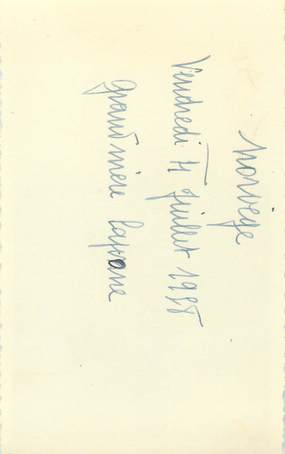 Norvège
Vendredi 4 Juillet 1958
grand'mère lapone